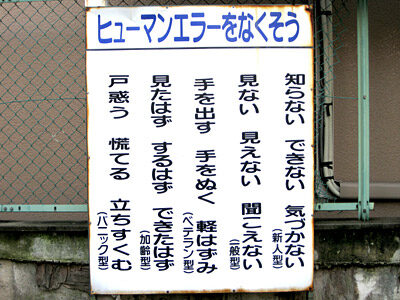 ヒューマンエラーをなくそう
知らない できない 気づかない
(新人型)
見ない 見えない 聞こえない
(一般型)
手を出す 手をぬく 軽はずみ
(ベテラン型)
見たはず するはず できたはず
(加齢型)
戸惑う 慌てる 立ちすくむ
(パニック型)